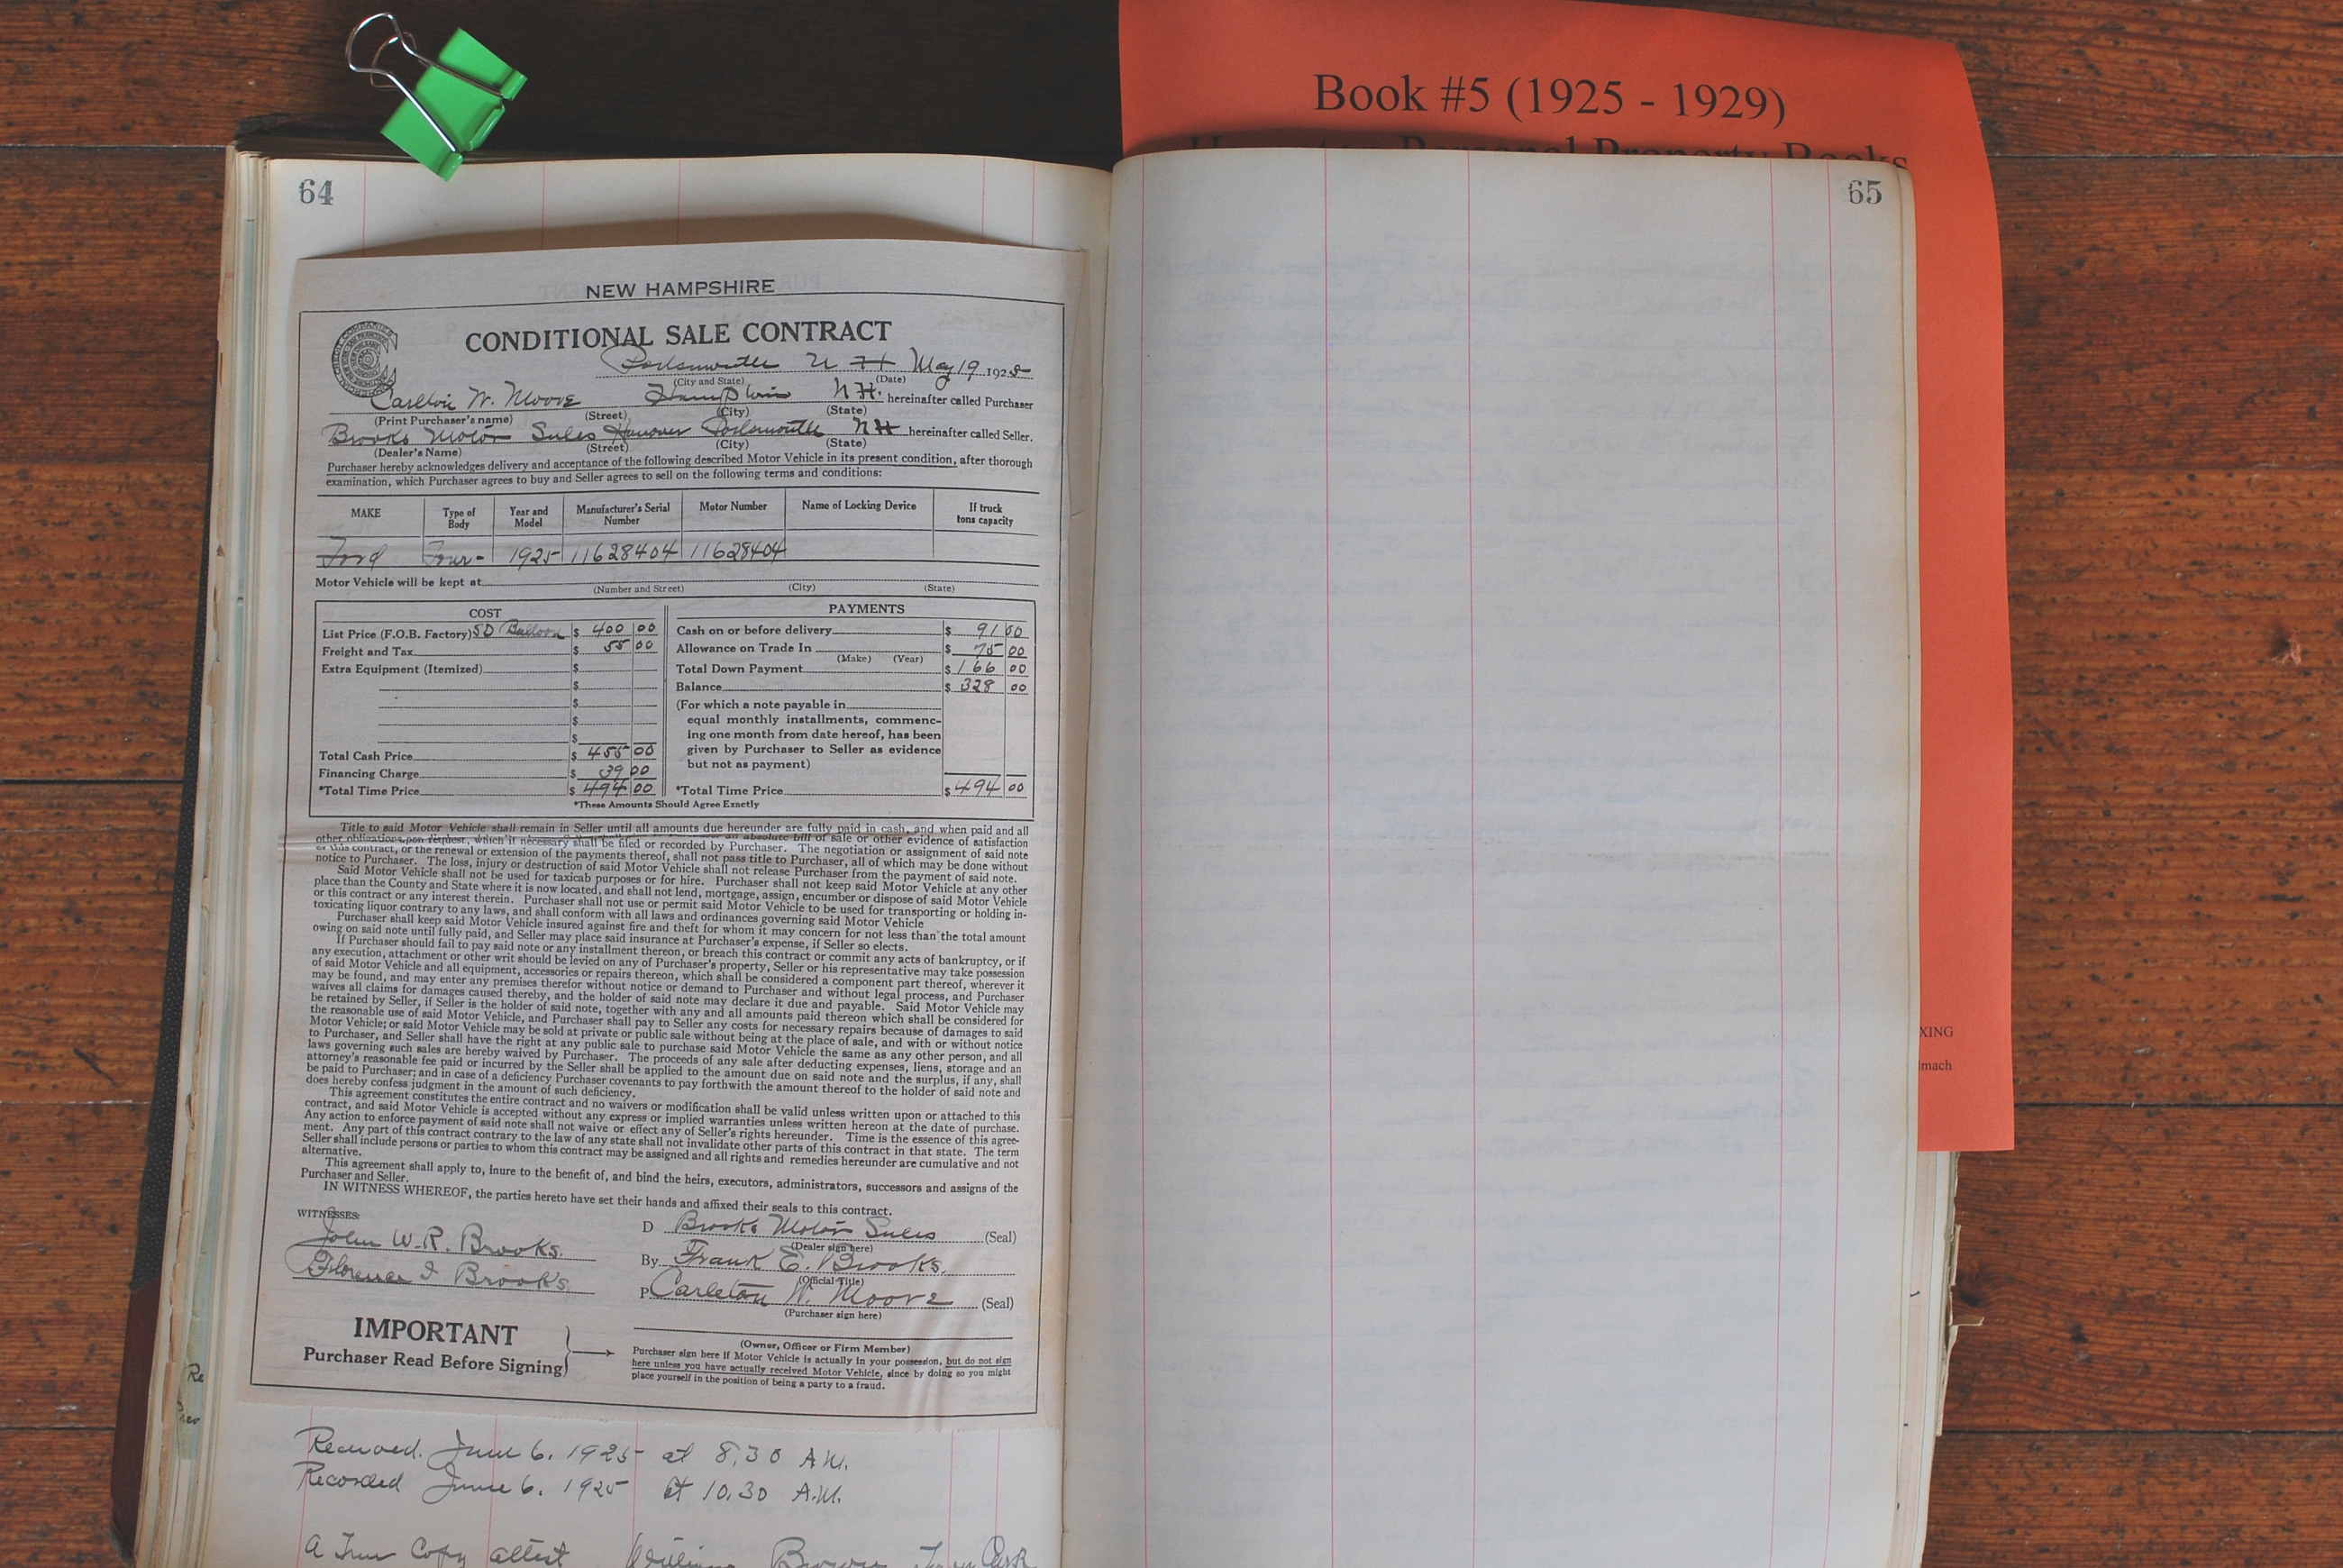 Book #5 (1925 - 1929)
Personal Property Books
64
65
NEW HAMPSHIRE
CONDITIONAL SALE CONTRACT
Portsmouth N H May 19 1925
(City and State) (Date)
Carlton W. Moore Hampton N.H. hereinafter called Purchaser
(Print Purchaser's name) (Street) (City) (State)
Brooks Motor Sales Hanover Portsmouth NH hereinafter called Seller.
(Dealer's Name) (Street) (City) (State)
Purchaser hereby acknowledges delivery and acceptance of the following described Motor Vehicle in its present condition, after thorough
examination, which Purchaser agrees to buy and Seller agrees to sell on the following terms and conditions:
MAKE Type of Body Year and Model Manufacturer's Serial Number Motor Number Name of Locking Device If truck tons capacity
Ford Tour- 1925 11628404 11628404
Motor Vehicle will be kept at
(Number and Street) (City) (State)
COST
List Price (F.O.B. Factory) 5D Balloon $ 400 00
Freight and Tax $ 55 00
Extra Equipment (Itemized) $
$
$
$
$
Total Cash Price $ 455 00
Financing Charge $ 39 00
*Total Time Price $ 494 00
PAYMENTS
Cash on or before delivery $ 91 00
Allowance on Trade In $ 75 00
(Make) (Year)
Total Down Payment $ 166 00
Balance $ 328 00
(For which a note payable in
equal monthly installments, commenc-
ing one month from date hereof, has been
given by Purchaser to Seller as evidence
but not as payment)
*Total Time Price $ 494 00
*These Amounts Should Agree Exactly
Title to said Motor Vehicle shall remain in Seller until all amounts due hereunder are fully paid in cash, and when paid and all
other obligations upon request, which if necessary shall be filed or recorded by Purchaser. The negotiation or assignment of said note
or this contract, or the renewal or extension of the payments thereof, shall not pass title to Purchaser, all of which may be done without
notice to Purchaser. The loss, injury or destruction of said Motor Vehicle shall not release Purchaser from the payment of said note.
Said Motor Vehicle shall not be used for taxicab purposes or for hire. Purchaser shall not keep said Motor Vehicle at any other
place than the County and State where it is now located, and shall not lend, mortgage, assign, encumber or dispose of said Motor Vehicle
or this contract or any interest therein. Purchaser shall not use or permit said Motor Vehicle to be used for transporting or holding in-
toxicating liquor contrary to any laws, and shall conform with all laws and ordinances governing said Motor Vehicle
Purchaser shall keep said Motor Vehicle insured against fire and theft for whom it may concern for not less than the total amount
owing on said note until fully paid, and Seller may place said insurance at Purchaser's expense, if Seller so elects.
If Purchaser should fail to pay said note or any installment thereon, or breach this contract or commit any acts of bankruptcy, or if
any execution, attachment or other writ should be levied on any of Purchaser's property, Seller or his representative may take possession
of said Motor Vehicle and all equipment, accessories or repairs thereon, which shall be considered a component part thereof, wherever it
may be found, and may enter any premises therefor without notice or demand to Purchaser and without legal process, and Purchaser
waives all claims for damages caused thereby, and the holder of said note may declare it due and payable. Said Motor Vehicle may
be retained by Seller, if Seller is the holder of said note, together with any and all amounts paid thereon which shall be considered for
the reasonable use of said Motor Vehicle, and Purchaser shall pay to Seller any costs for necessary repairs because of damages to said
Motor Vehicle; or said Motor Vehicle may be sold at private or public sale without being at the place of sale, and with or without notice
to Purchaser, and Seller shall have the right at any public sale to purchase said Motor Vehicle the same as any other person, and all
laws governing such sales are hereby waived by Purchaser. The proceeds of any sale after deducting expenses, liens, storage and an
attorney's reasonable fee paid or incurred by the Seller shall be applied to the amount due on said note and the surplus, if any, shall
be paid to Purchaser; and in case of a deficiency Purchaser covenants to pay forthwith the amount thereof to the holder of said note and
does hereby confess judgment in the amount of such deficiency.
This agreement constitutes the entire contract and no waivers or modification shall be valid unless written upon or attached to this
contract, and said Motor Vehicle is accepted without any express or implied warranties unless written hereon at the date of purchase.
Any action to enforce payment of said note shall not waive or effect any of Seller's rights hereunder. Time is the essence of this agree-
ment. Any part of this contract contrary to the law of any state shall not invalidate other parts of this contract in that state. The term
Seller shall include persons or parties to whom this contract may be assigned and all rights and remedies hereunder are cumulative and not
alternative.
This agreement shall apply to, inure to the benefit of, and bind the heirs, executors, administrators, successors and assigns of the
Purchaser and Seller.
IN WITNESS WHEREOF, the parties hereto have set their hands and affixed their seals to this contract.
WITNESSES:
John W.R. Brooks.
Florence I Brooks
D Brooks Motor Sales (Seal)
(Dealer sign here)
By Frank E. Brooks.
(Official Title)
P Carleton W. Moore (Seal)
(Purchaser sign here)
IMPORTANT
Purchaser Read Before Signing
(Owner, Officer or Firm Member)
Purchaser sign here if Motor Vehicle is actually in your possession, but do not sign
here unless you have actually received Motor Vehicle, since by doing so you might
place yourself in the position of being a party to a fraud.
Received. June 6. 1925 at 8.30 A.M.
Recorded June 6. 1925 at 10.30 A.M.
A True Copy attest William Brown Town Clerk
XING
lmach